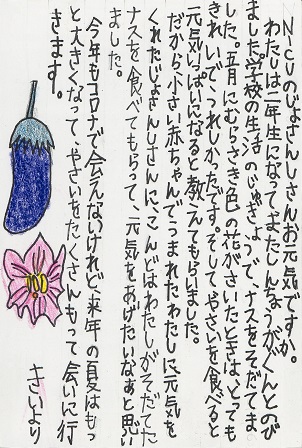 NICUのじょさんしさんお元気ですか。
わたしは二年生になってまたしんちょうがぐんとのび
ました。学校の生活のじゅぎょうで、ナスをそだてま
した。五月にむらさき色の花がさいたときは、とても
きれいで、うれしかったです。そして、やさいを食べると
元気いっぱいになると教えてもらいました。
だから、小さい赤ちゃんでうまれたわたしに元気を
くれたじょさんしさんに、こんどはわたしがそだてた
ナスを食べてもらって、元気をあげたいなあと思い
ました。
今年もコロナで会えないけれど来年の夏はもっ
と大きくなって、やさいをたくさんもって会いに行
きます。
さいより